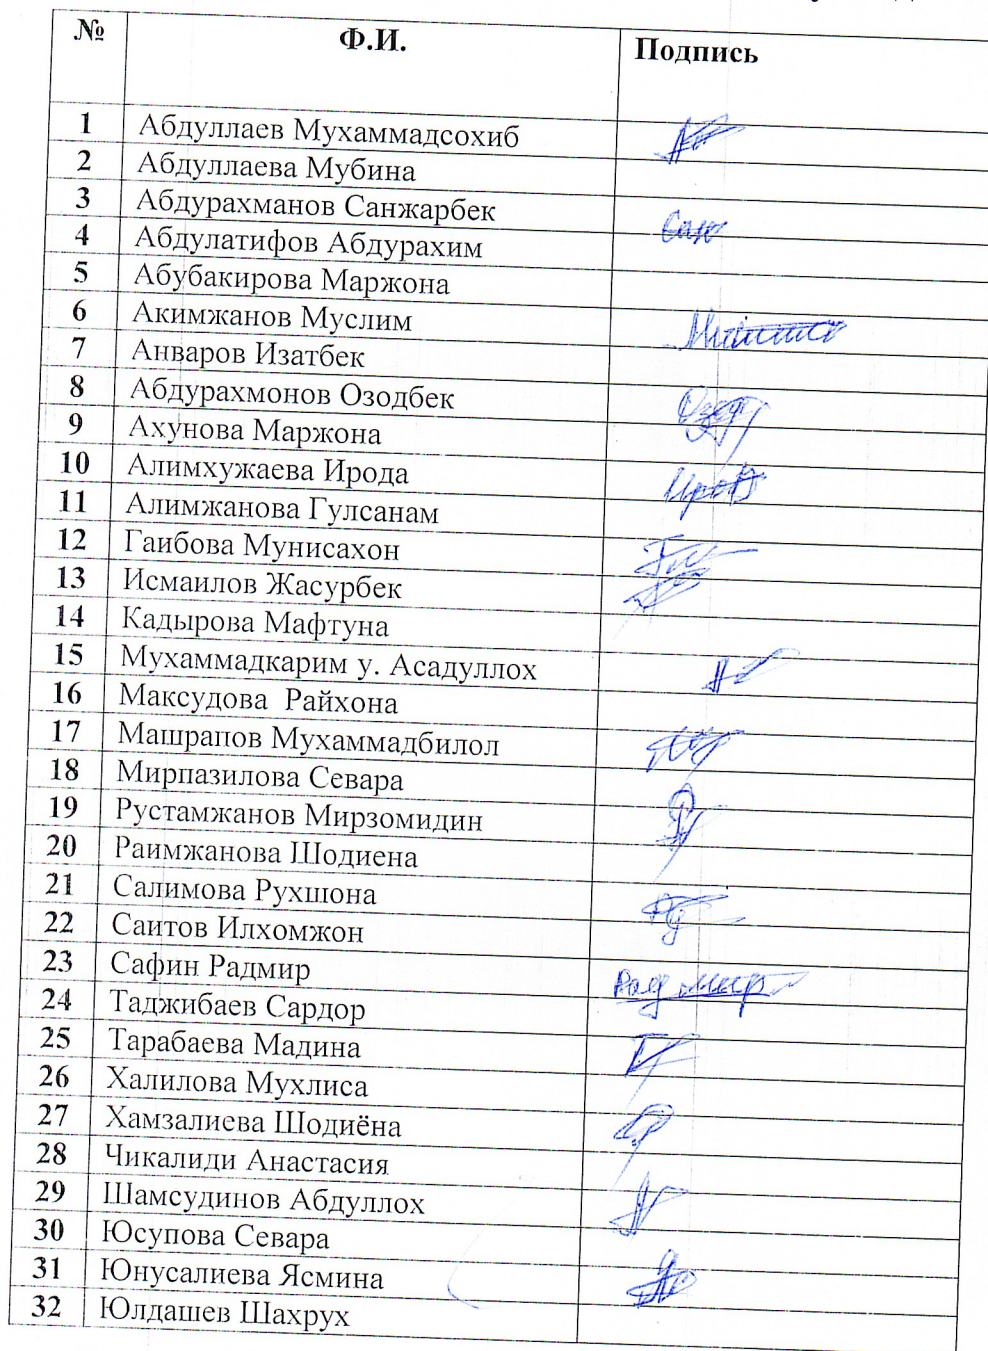 № Ф.И. Подпись
1 Абдуллаев Мухаммадсохиб
2 Абдуллаева Мубина
3 Абдурахманов Санжарбек
4 Абдулатифов Абдурахим
5 Абубакирова Маржона
6 Акимжанов Муслим
7 Анваров Изатбек
8 Абдурахмонов Озодбек
9 Ахунова Маржона
10 Алимхужаева Ирода
11 Алимжанова Гулсанам
12 Гаибова Мунисахон
13 Исмаилов Жасурбек
14 Кадырова Мафтуна
15 Мухаммадкарим у. Асадуллох
16 Максудова Райхона
17 Машрапов Мухаммадбилол
18 Мирпазилова Севара
19 Рустамжанов Мирзомидин
20 Раимжанова Шодиена
21 Салимова Рухшона
22 Саитов Илхомжон
23 Сафин Радмир Радмир
24 Таджибаев Сардор
25 Тарабаева Мадина
26 Халилова Мухлиса
27 Хамзалиева Шодиёна
28 Чикалиди Анастасия
29 Шамсудинов Абдуллох
30 Юсупова Севара
31 Юнусалиева Ясмина
32 Юлдашев Шахрух